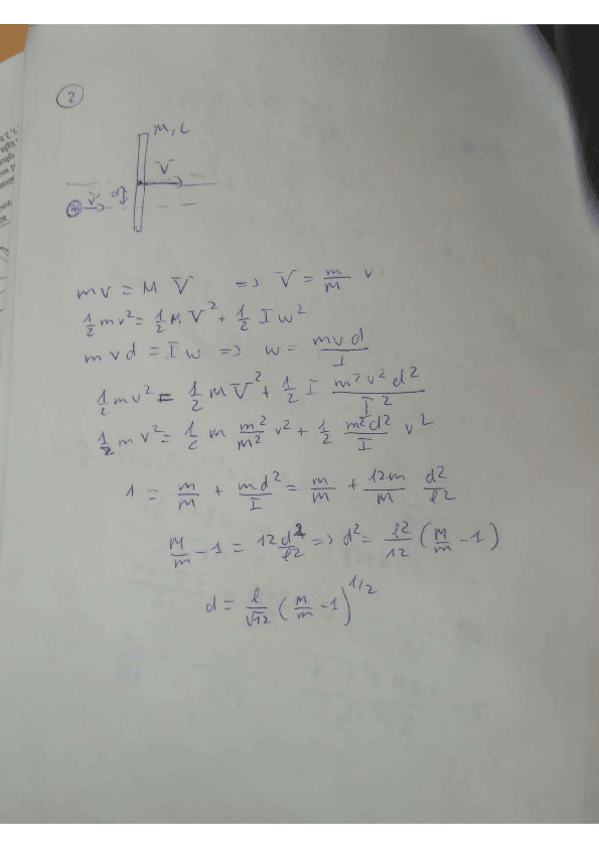 2
M, L
V
m v d
m v = M V => V = m/M v
1/2 m v² = 1/2 M V² + 1/2 I w²
m v d = I w => w = m v d / I
1/2 m v² = 1/2 M V² + 1/2 I m² v² d² / I²
1/2 m v² = 1/2 m m²/M² v² + 1/2 m² d²/I v²
1 = m/M + m d²/I = m/M + 12m/M d²/l²
M/m - 1 = 12 d²/l² => d² = l²/12 (M/m - 1)
d = l/√12 (M/m - 1)^1/2